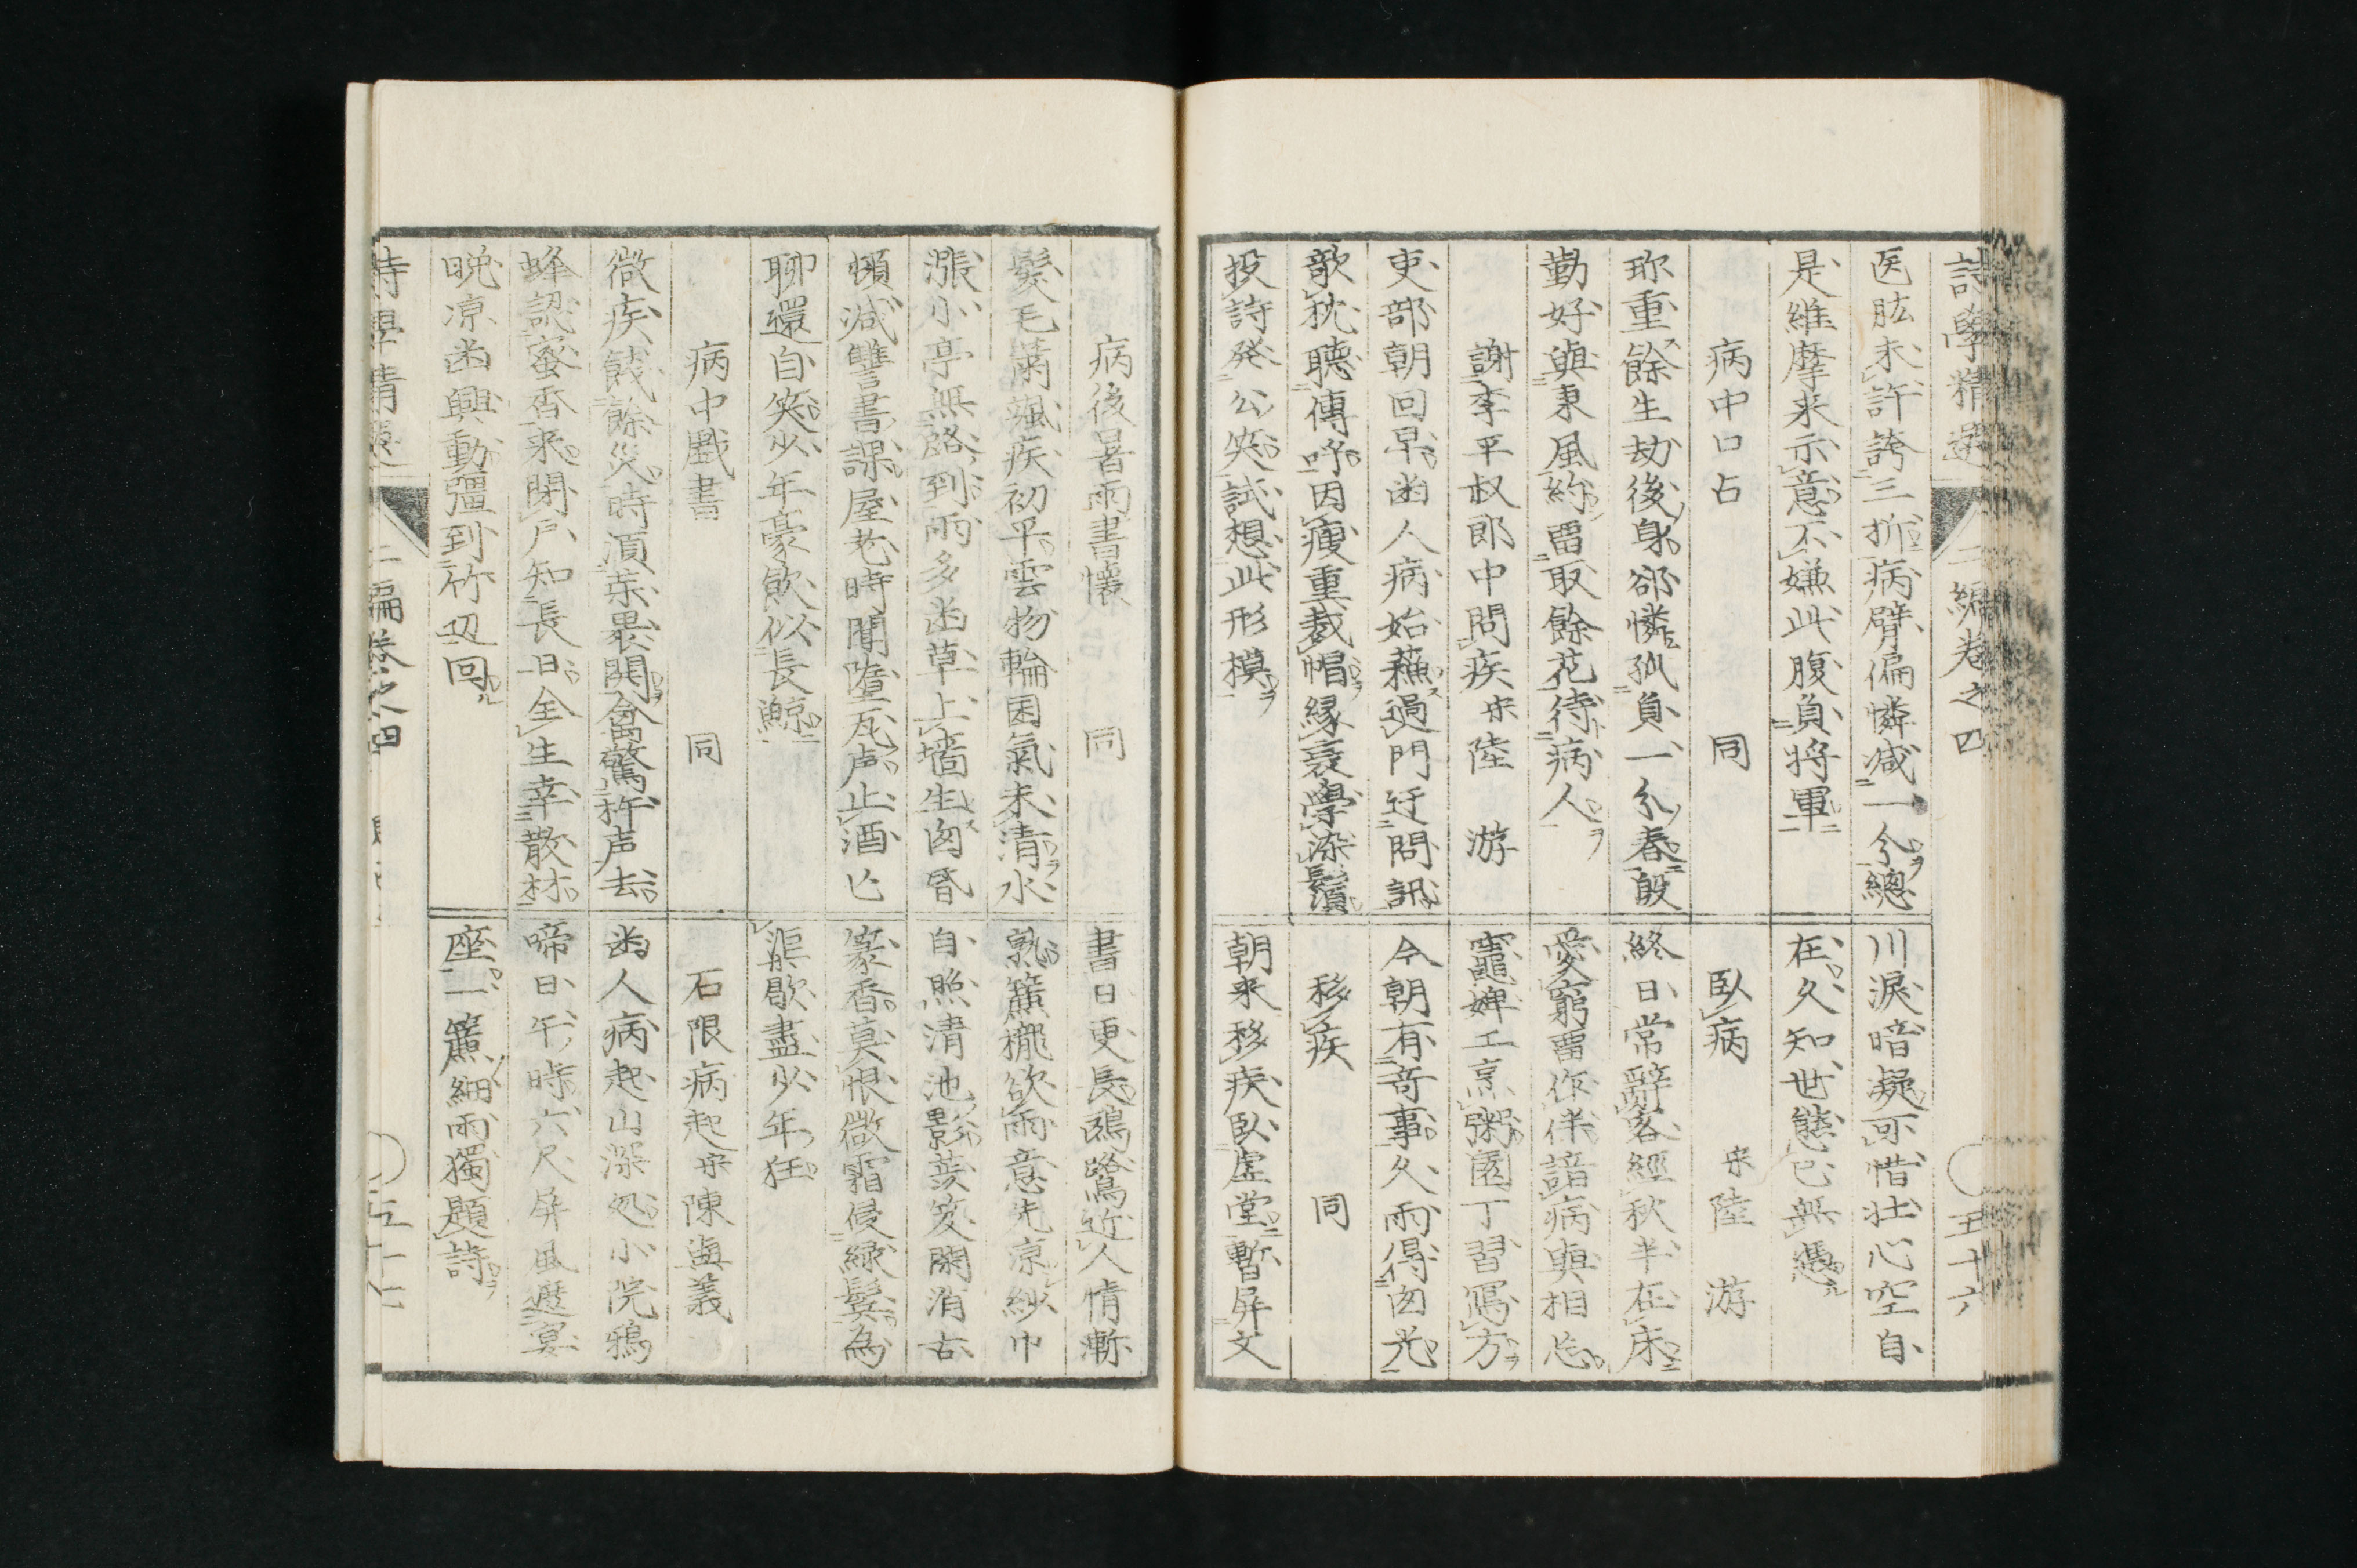 詩學精選 二編卷之四 五十六
医肱未許誇三折病臂偏憐減一分總
是維摩来示意不嫌此腹負将軍
病中口占 同
珎重餘生劫後身郤憐孤負一分春殷
勤好與東風約畱取餘花待病人
謝李平叔郎中問疾 宋陸 游
吏部朝回早 人病始蘓過門迂問訊
欹枕聴傳呼因瘦重裁帽縁衰學染鬚
投詩発公笑試想此形模
川涙暗凝可惜壮心空自
在久知世態已無憑
臥病 宋陸 游
終日常辭客經秋半在床
愛窮畱作伴諳病與相忘
竈婢工烹粥園丁習寫方
今朝有竒事久雨得囱光
移疾 同
朝来移疾臥虚堂暫屏文
病後暑雨書懐 同
髮毛蕭颯疾初平雲物輪囷氣未清水
漲小亭無路到雨多 草上墻生囱昏
懶減讐書課屋老時聞墮瓦声止酒亡
聊還自笑少年豪飲似長鯨
病中戯書 同
微疾餞餘災時湏薬裹開禽驚杵声去
蜂認蜜香来閉戸知長日全生幸散材
晩凉 興動彊到竹辺回
書日更長鴎鷺近人情漸
熟簾櫳欲雨意先凉紗巾
自照清池影 笈閑消古
篆香莫恨微霜侵緑鬓為
渠歇盡少年狂
石限病起 宋陳與義
人病起山深処小院鴉
啼日午時六尺屏風遮宴
座一簾細雨獨題詩
詩學精選 二編卷之四 五十七